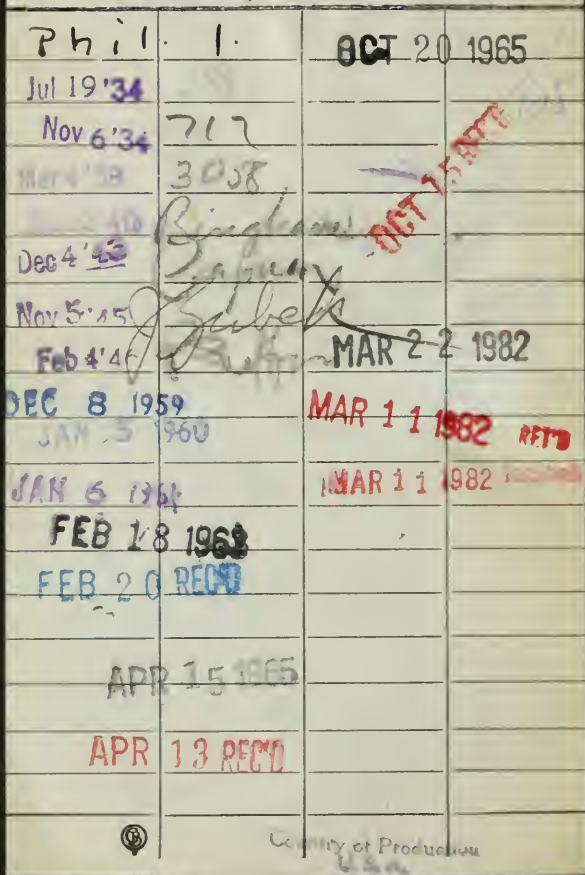 Phil. 1.
Jul 19 '34
Nov 6 '34 717
3058
Dec 4 '43
Nov 5 '45
Feb 4 '46
DEC 8 1959
JAN 5 1960
JAN 6
FEB 18
FEB 20 REC'D
APR 15 1965
APR 13 REC'D
OCT 20 1965
OCT 15 REC'D
MAR 22 1982
MAR 11 1982 RET'D
MAR 11 1982
Country of Production
U.S.A.